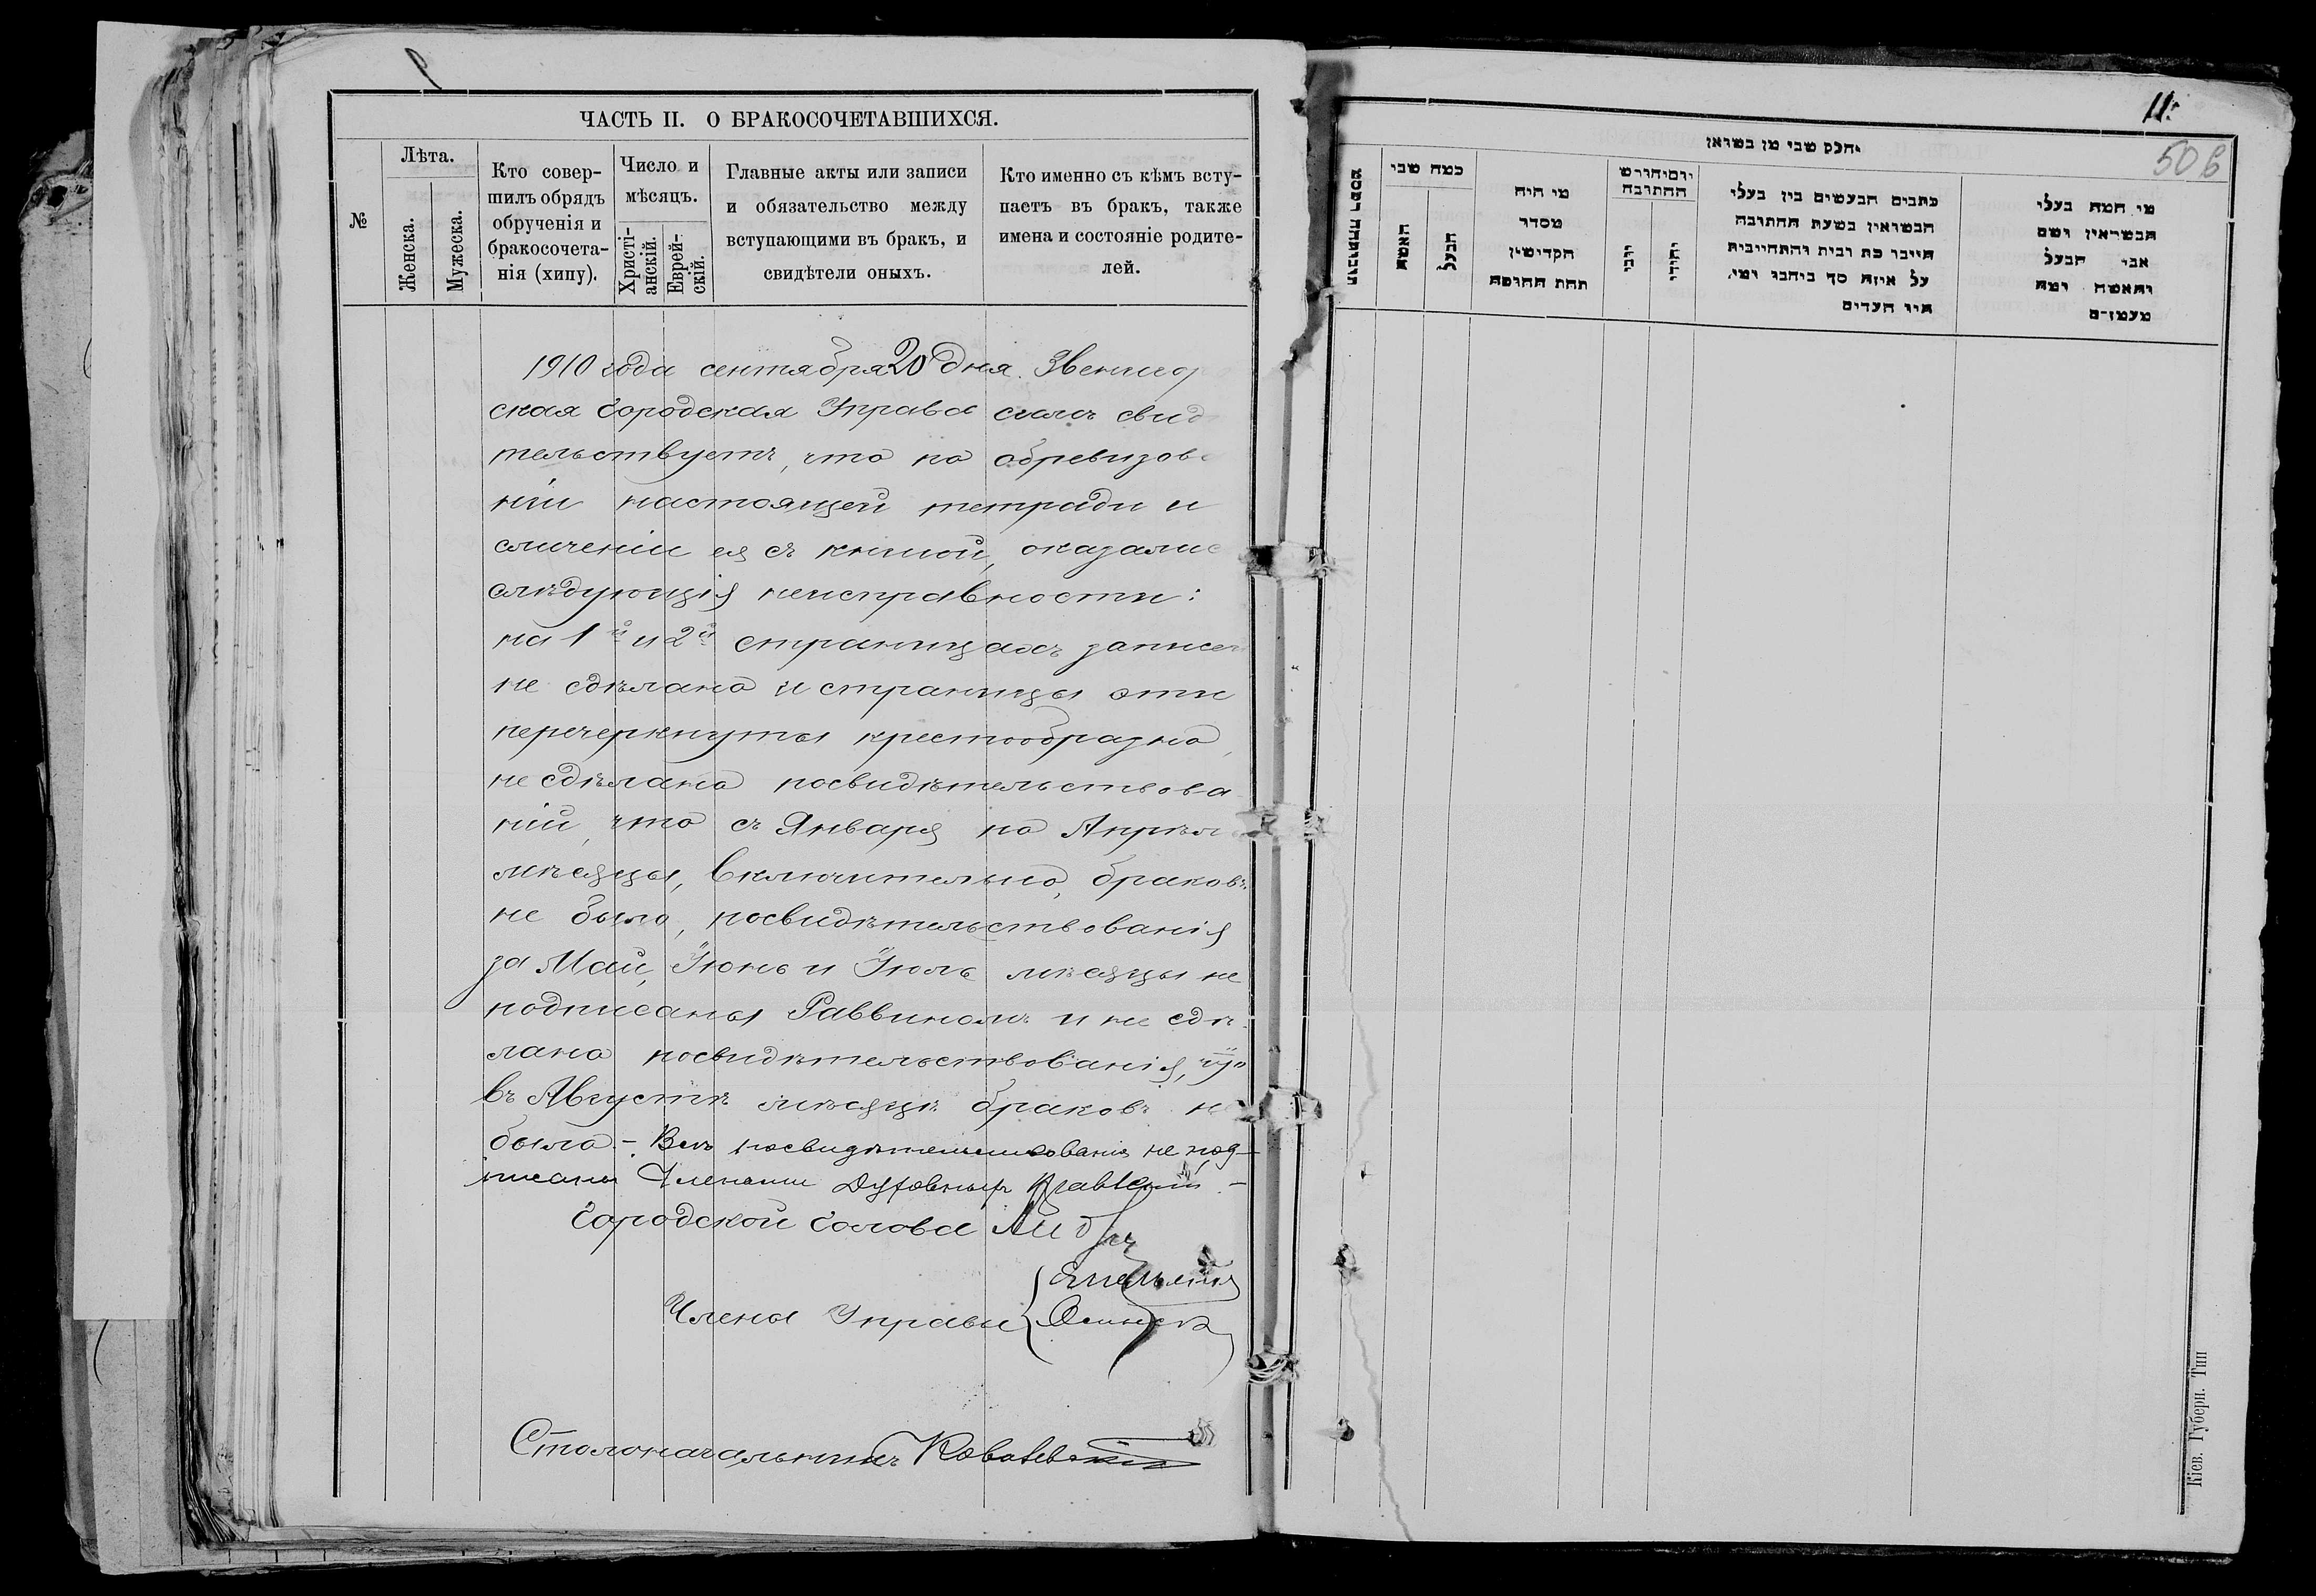 ЧАСТЬ II. О БРАКОСОЧЕТАВШИХСЯ.
№
Лѣта.
Женска.
Мужеска.
Кто совер-
шилъ обрядъ
обрученія и
бракосочета-
нія (хипу).
Число и
мѣсяцъ.
Христі-
анскій.
Еврей-
скій.
Главные акты или записи
и обязательство между
вступающими въ бракъ, и
свидѣтели оныхъ.
Кто именно съ кѣмъ всту-
паетъ въ бракъ, также
имена и состояніе родите-
лей.
1910 года сентября 20 дня. Звениго
ская Городская Управа симъ свид
тельствуетъ, что по обревизов
ніи настоящей тетради и
сличеніи ея съ книгой, оказалис
слѣдующія неисправности:
на 1й и 2й страницахъ записе
не сдѣлано и страницы эти
перечеркнуты крестообразно,
не сдѣлано посвидѣтельствова
ніи, что съ Января по Апрѣл
мѣсяцы, включительно, браковъ
не было, посвидѣтельствованія
за Май, Іюнь и Іюль мѣсяцы не
подписаны Раввиномъ и не сдѣ-
лано посвидѣтельствованія, что
въ Августѣ мѣсяцѣ браковъ не
было. - Всѣ посвидѣтельствованія не под-
писаны Членами Духовныхъ Правленій. -
Городской Голова
Члены Управы
Столоначальникъ Ковалевскій
11.
506
חלק שני מן בשואין
כמה שני
האשה
הבעל
מי היה
מסדר
הקדושין
תחת החופה
יום וחודש
החתונה
יוני
יהודי
כתבים הנעשים בין בעלי
הנשואין בשעת החתונה
חייבי כת רבית והתחייבות
על איזה סך ביחבו ומי,
היו העדים
מי המה בעלי
הנשואין ושם
אבי הבעל
והאשה ומה
מעמדם
Кіев. Губерн. Тип